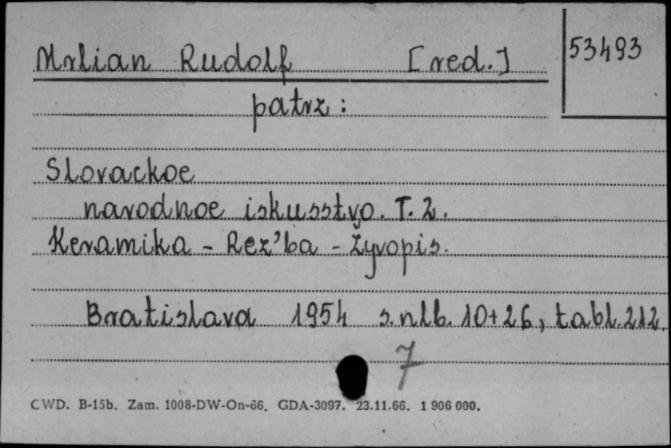 Mrlian Rudolf [red.] 53493
patrz:
Slovackoe
narodnoe iskusstvo. T. 2.
Keramika - Rez'ba - Žyvopis.
Bratislava 1954 s. nlb. 10+26, tabl. 212.
7
CWD. B-15b. Zam. 1008-DW-On-66. GDA-3097. 23.11.66. 1 906 000.